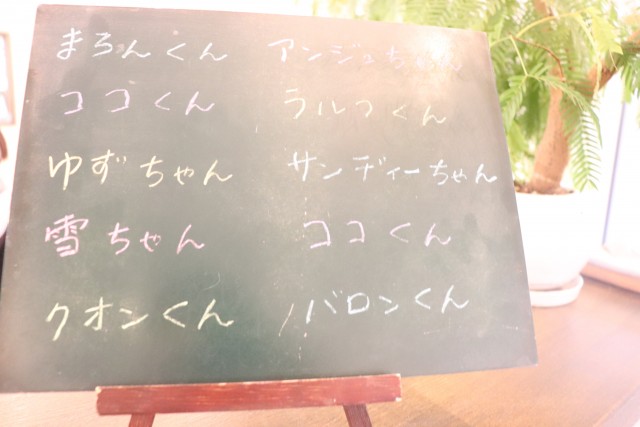 まろんくん アンジュちゃん
ココくん ラルフくん
ゆずちゃん サンディーちゃん
雪ちゃん ココくん
クオンくん バロンくん